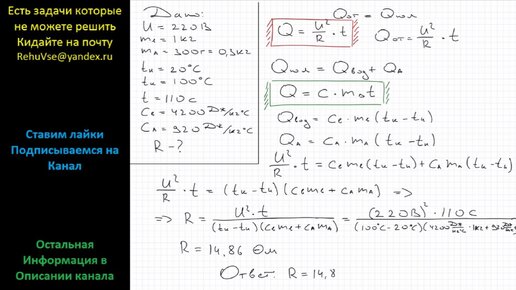 Есть задачи которые
не можете решить
Кидайте на почту
RehuVse@yandex.ru
Ставим лайки
Подписываемся на
Канал
Остальная
Информация в
Описании канала
Дано:
U = 220В
mв = 1кг
mА = 300г = 0,3кг
tн = 20°C
tк = 100°C
t = 110c
Cв = 4200 Дж/кг°C
CА = 920 Дж/кг°C
R - ?
Qот = Qпол
Q = U²/R · t
Qот = U²/R · t
Qпол = Qвод + QА
Q = c · m₀t
Qвод = Cв · mв (tк - tн)
QА = CА · mА (tк - tн)
U²/R · t = Cвmв(tк - tн) + CАmА(tк - tн)
U²/R · t = (tк - tн)(Cвmв + CАmА) =>
=> R = U² · t / (tк - tн)(Cвmв + CАmА) = (220В)² · 110c / (100°C - 20°C)(4200 Дж/кг°C · 1кг + 920 Дж
R = 14,86 Ом
Ответ: R = 14,8